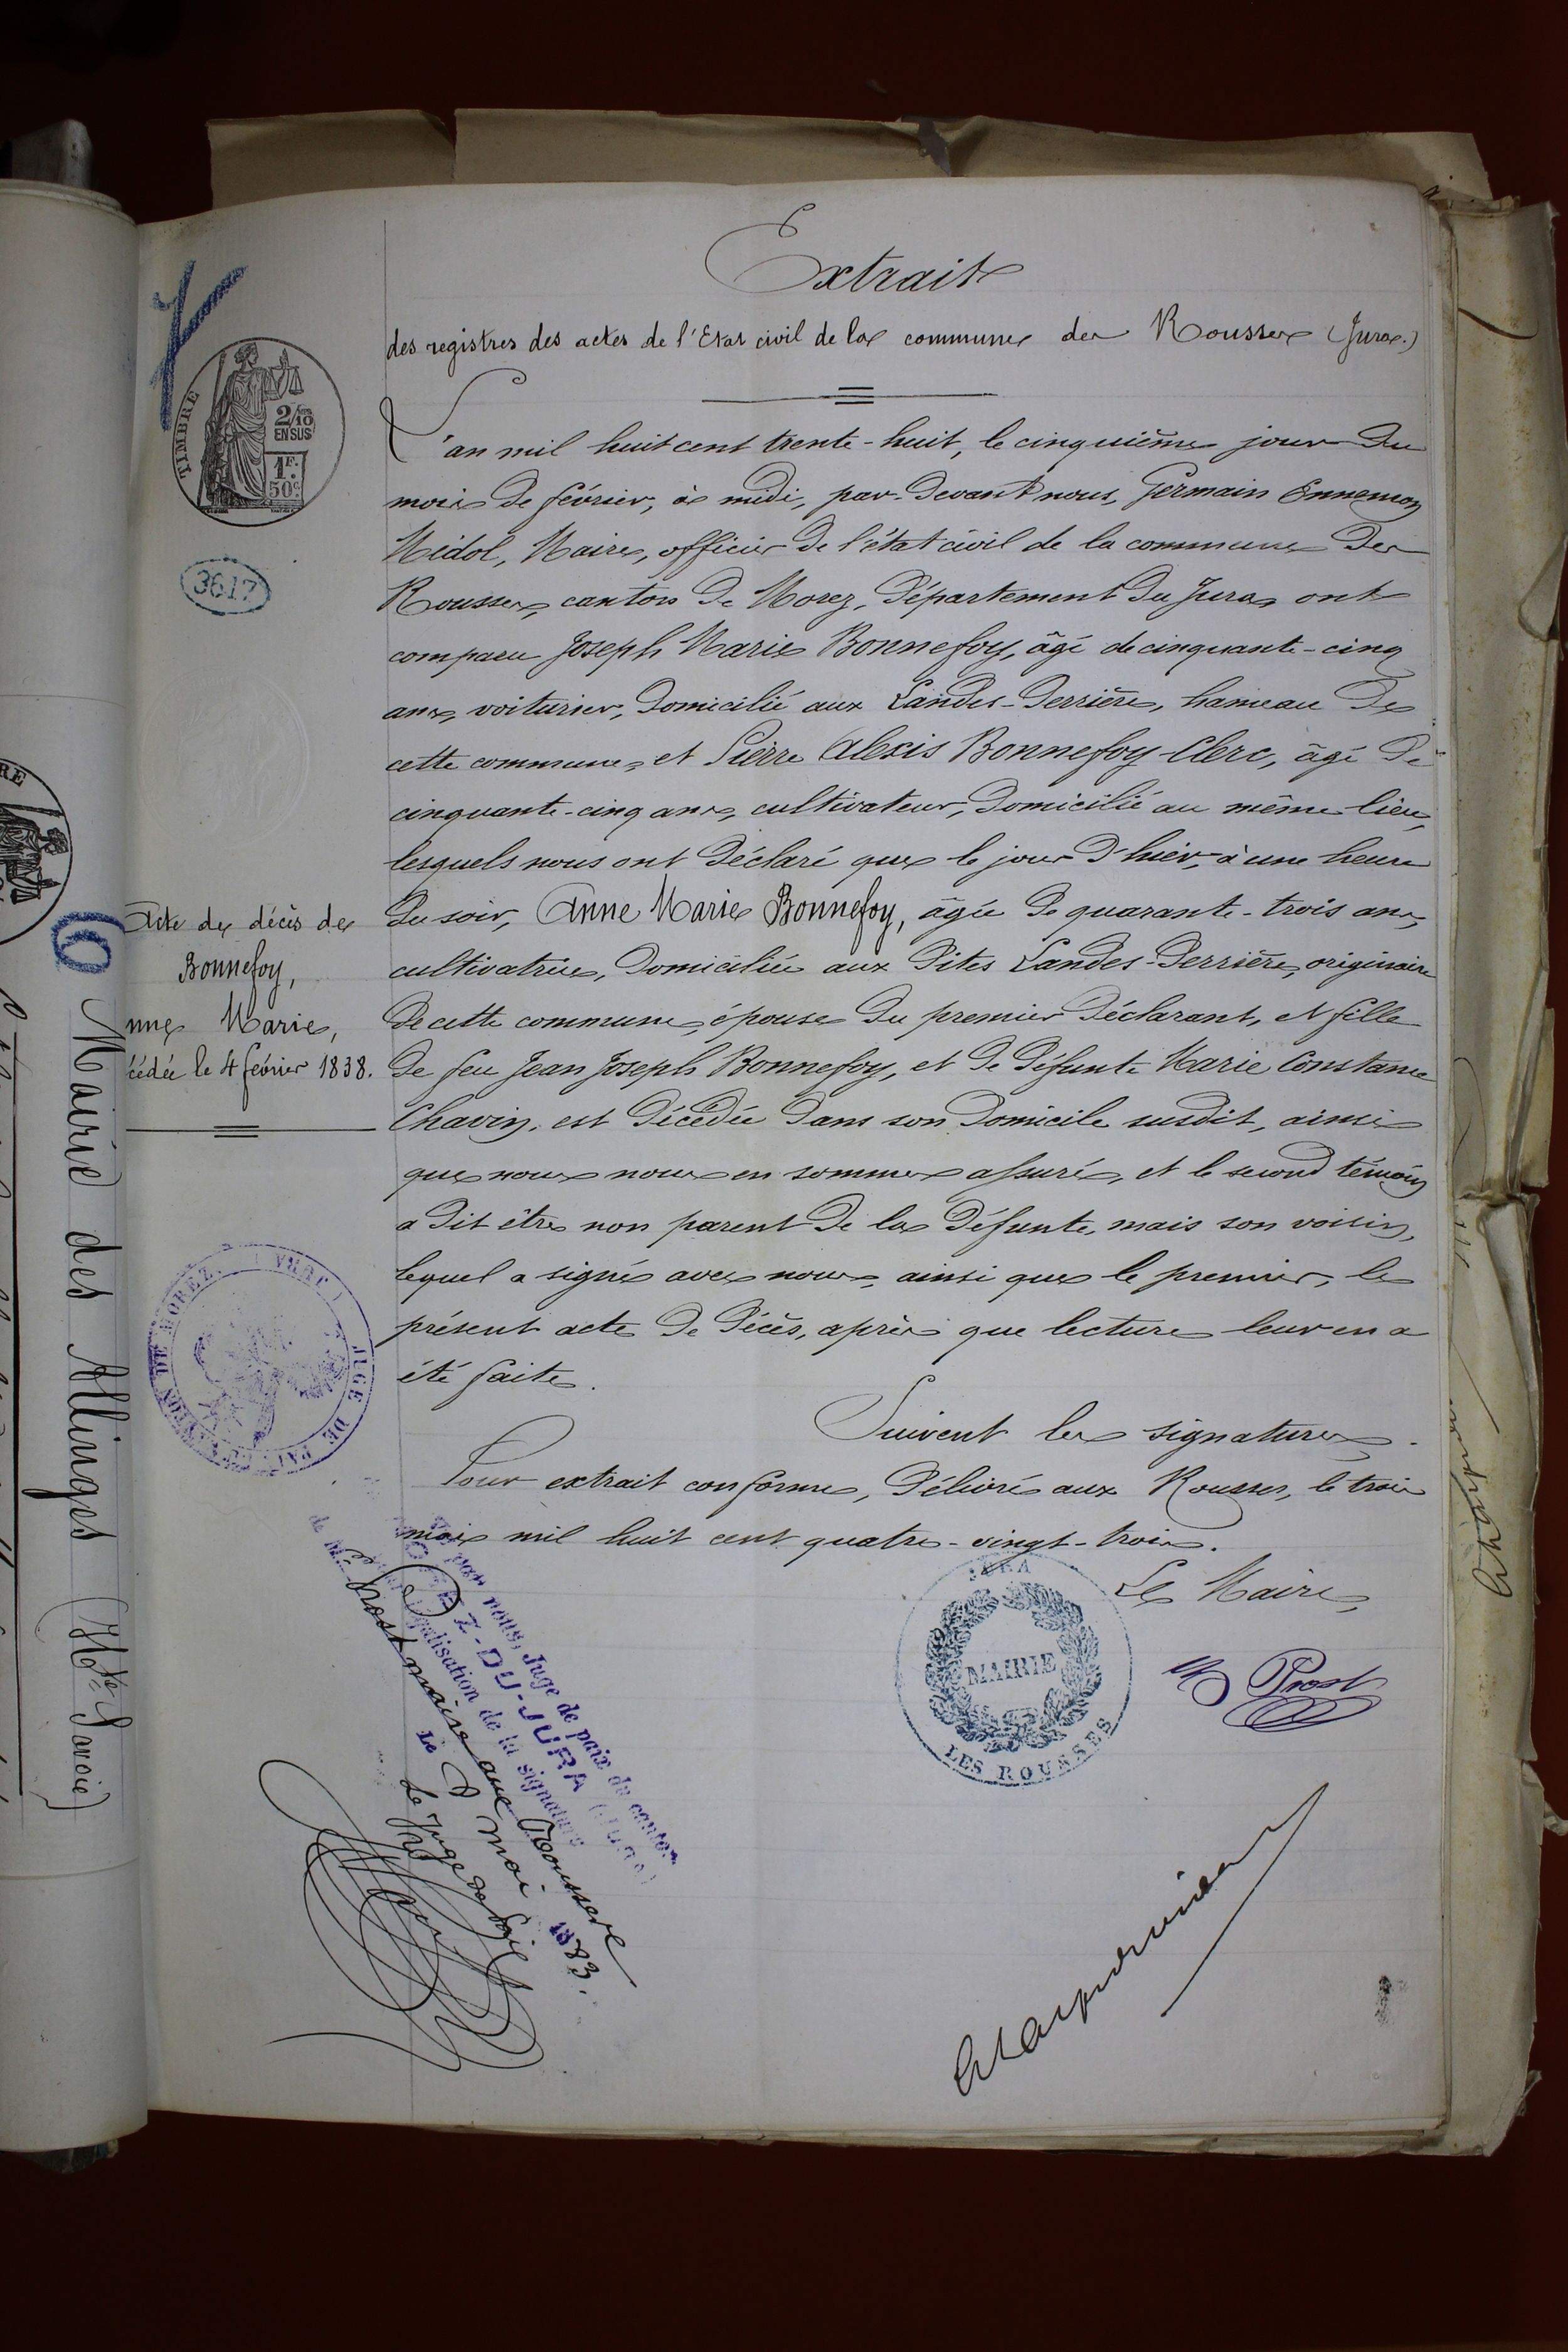 Extrait
des registres des actes de l'Etat civil de la commune des Rousses (Jura.)
L'an mil huit cent trente-huit, le cinquième jour du
mois de février, à midi, par-devant nous, Germain Ennemon
Midol, Maire, officier de l'état civil de la commune des
Rousses, canton de Morez, Département du Jura, ont
comparu Joseph Marie Bonnefoy, âgé de cinquante-cinq
ans, voiturier, domicilié aux Landes-Derrière, hameau de
cette commune, et Pierre Alexis Bonnefoy-Clerc, âgé de
cinquante-cinq ans, cultivateur, domicilié au même lieu,
lesquels nous ont déclaré que le jour d'hier, à une heure
du soir, Anne Marie Bonnefoy, âgée de quarante-trois ans,
cultivatrice, domiciliée aux dites Landes-Derrière, originaire
de cette commune, épouse du premier déclarant, et fille
de feu Jean Joseph Bonnefoy, et de défunte Marie Constance
Chavin, est décédée dans son domicile susdit, ainsi
que nous nous en sommes assuré, et le second témoin
a dit être non parent de la défunte, mais son voisin,
lequel a signé avec nous, ainsi que le premier, le
présent acte de décès, après que lecture leur en a
été faite.
Suivent les signatures.
Pour extrait conforme, délivré aux Rousses, le trois
mai mil huit cent quatre-vingt-trois.
Le Maire,
Prost
JURA
MAIRIE
LES ROUSSES
TIMBRE
2/10
EN SUS
1F.
50c
3617
Acte de décès de
Bonnefoy,
nne Marie,
cédée le 4 février 1838.
JUGE DE PAIX
CANTON DE MOREZ.
(JURA)
par nous, Juge de paix du canton
MOREZ-DU-JURA (JURA)
légalisation de la signature
de M. Prost maire aux Rousses
Le 8 mai 1883.
Le Juge de Paix
6
Mairie des Allinges (Hte Savoie)